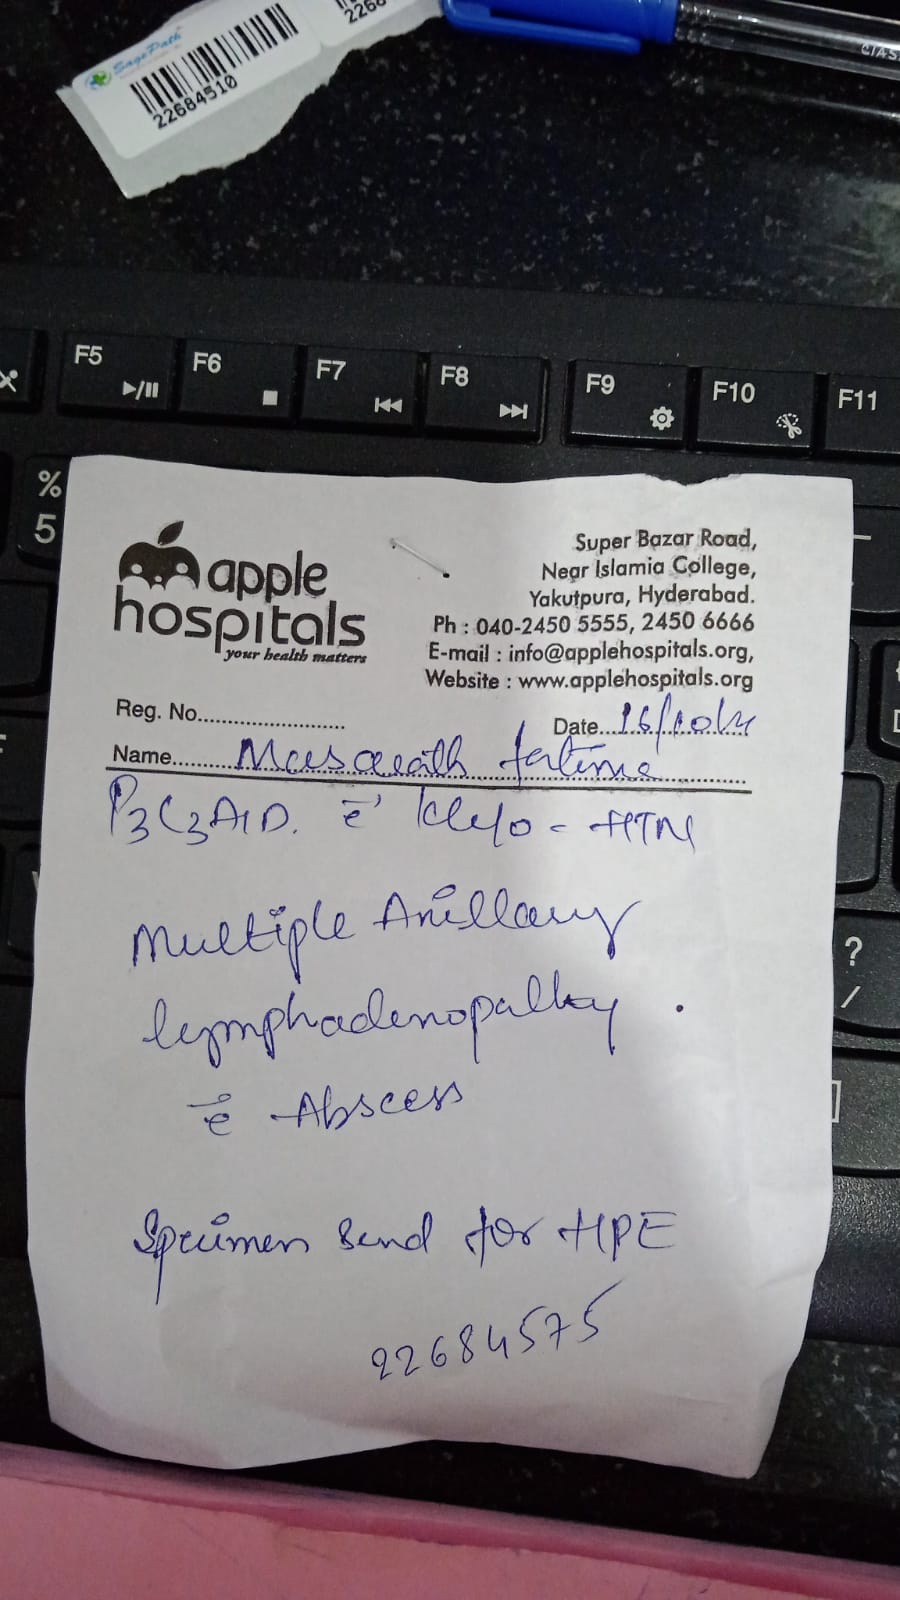 SagePath
22684510
226
CLAS
F5
F6
F7
F8
F9
F10
F11
%
5
apple
hospitals
your health matters
Super Bazar Road,
Near Islamia College,
Yakutpura, Hyderabad.
Ph : 040-2450 5555, 2450 6666
E-mail : info@applehospitals.org,
Website : www.applehospitals.org
Reg. No.
Date
Name
fatima
HTN
Multiple Axillary
lymphadenopathy .
c̄ Abscess
Specimen Send for HPE
22684575
?
/